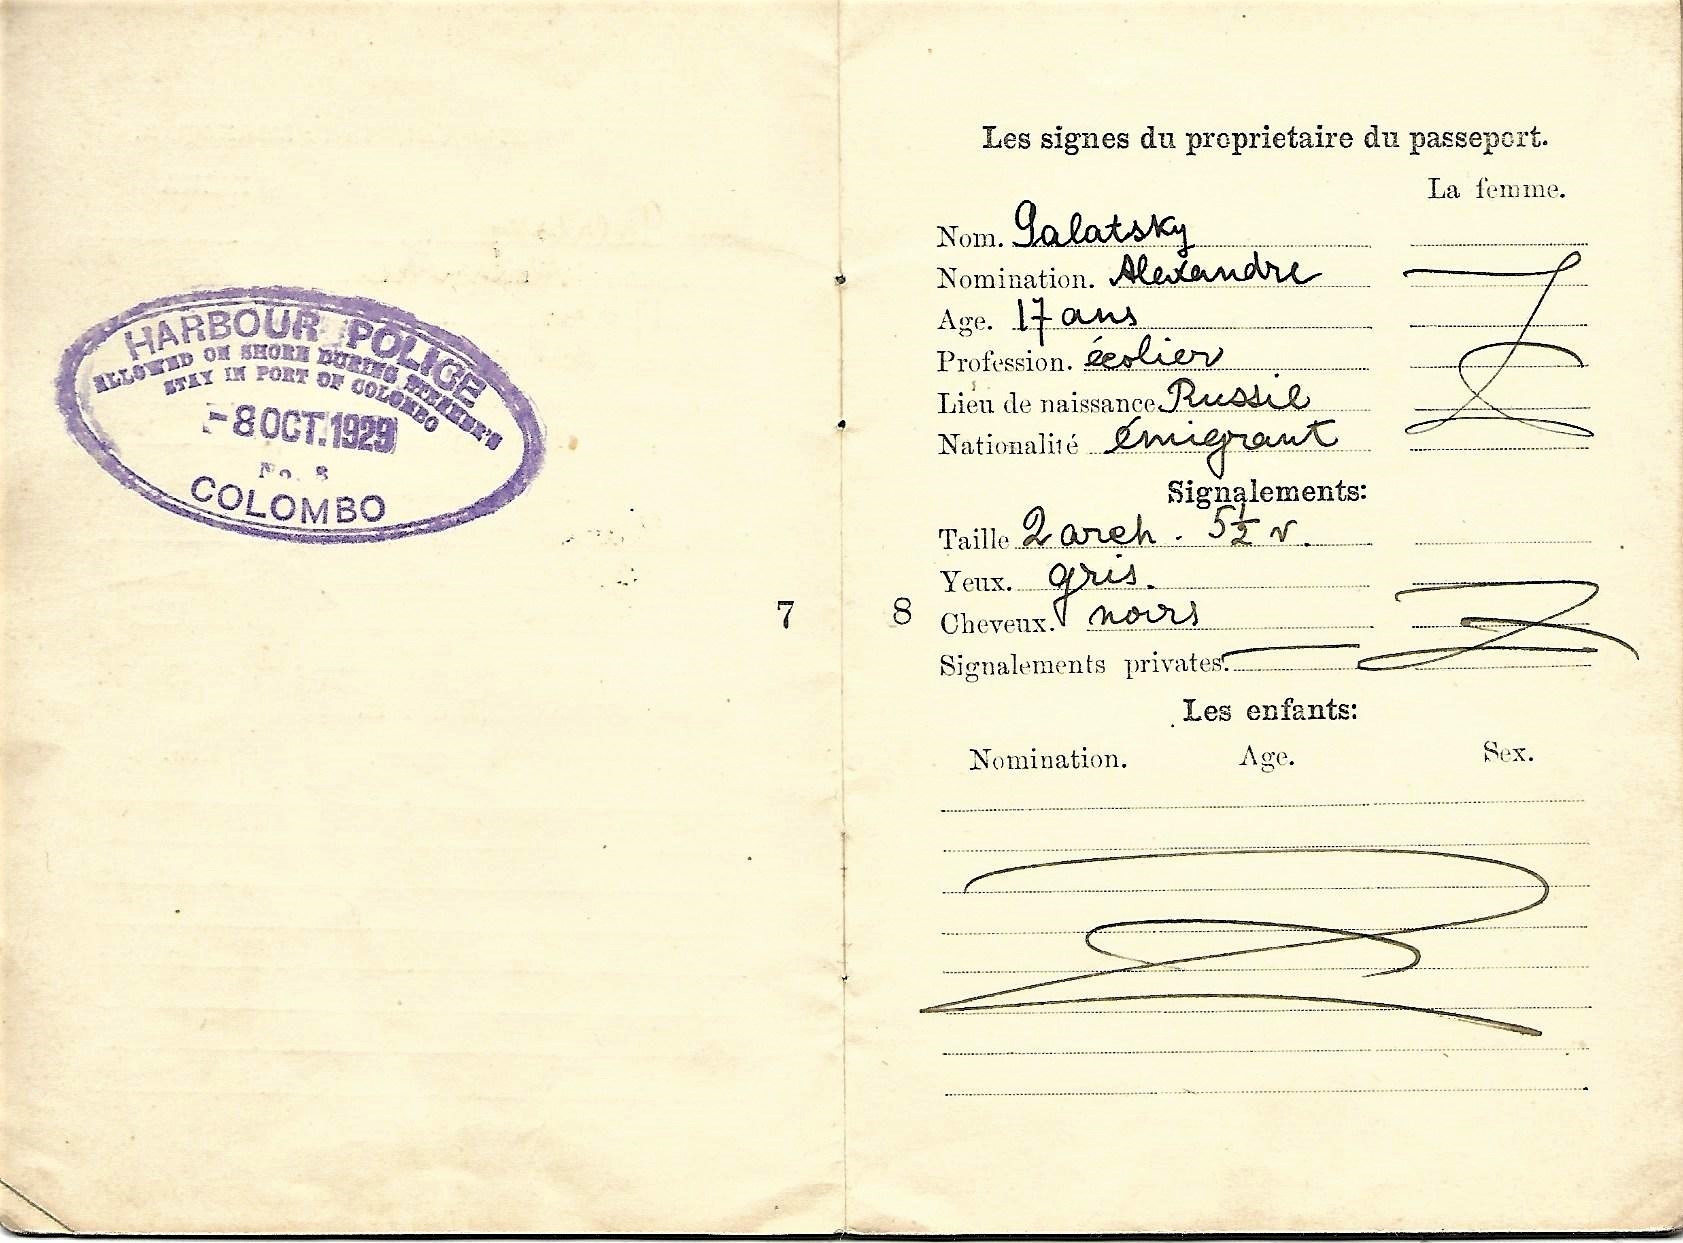 HARBOUR POLICE
ALLOWED ON SHORE DURING STEAMER'S
STAY IN PORT OF COLOMBO
-8 OCT. 1929
No. 8
COLOMBO
7
Les signes du proprietaire du passeport.
La femme.
Nom. Galatsky
Nomination. Alexandre
Age. 17 ans
Profession. écolier
Lieu de naissance. Russie
Nationalité émigrant
Signalements:
Taille 2 arch. 5 1/2 v.
Yeux. gris.
8
Cheveux. noirs
Signalements privates.
Les enfants:
Nomination. Age. Sex.